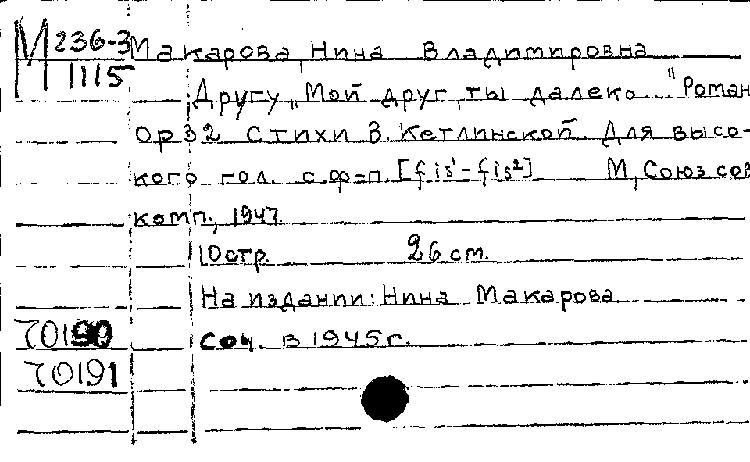 М 236-3 Макарова, Нина Владимировна
1115
Другу „Мой друг, ты далеко..." Роман
ор 32 Стихи В. Кетлинской. Для высо-
кого гол. с ф-п. [fis¹-fis²] М, Союз сов
комп., 1947.
10стр. 26 см.
На издании: Нина Макарова
70190 Соч. в 1945 г.
70191